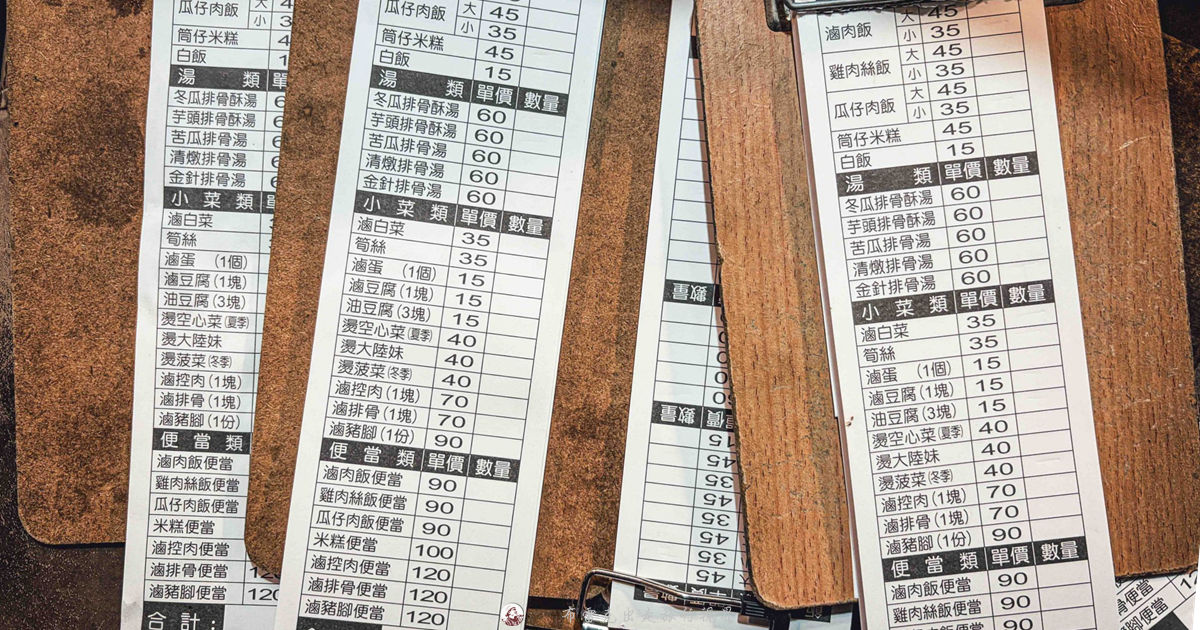 瓜仔肉飯 大 4
小 3
筒仔米糕 4
白飯 1
湯 類 單
冬瓜排骨酥湯 6
芋頭排骨酥湯 6
苦瓜排骨湯 6
清燉排骨湯 6
金針排骨湯 6
小菜類 單
滷白菜
筍絲
滷蛋 (1個)
滷豆腐(1塊)
油豆腐(3塊)
燙空心菜(夏季)
燙大陸妹
燙菠菜(冬季)
滷控肉(1塊)
滷排骨(1塊)
滷豬腳(1份)
便當類
滷肉飯便當
雞肉絲飯便當
瓜仔肉飯便當
米糕便當
滷控肉便當
滷排骨便當 12
滷豬腳便當 120
合計:
瓜仔肉飯 大 45
小 35
筒仔米糕 45
白飯 15
湯 類 單價 數量
冬瓜排骨酥湯 60
芋頭排骨酥湯 60
苦瓜排骨湯 60
清燉排骨湯 60
金針排骨湯 60
小菜類 單價 數量
滷白菜 35
筍絲 35
滷蛋 (1個) 15
滷豆腐(1塊) 15
油豆腐(3塊) 15
燙空心菜(夏季) 40
燙大陸妹 40
燙菠菜(冬季) 40
滷控肉(1塊) 70
滷排骨(1塊) 70
滷豬腳(1份) 90
便當類 單價 數量
滷肉飯便當 90
雞肉絲飯便當 90
瓜仔肉飯便當 90
米糕便當 100
滷控肉便當 120
滷排骨便當 120
滷豬腳便當 120
數量
數量 單價
15
45
35
45
35
45
35
45
數量 單價
滷肉飯 大 45
小 35
雞肉絲飯 大 45
小 35
瓜仔肉飯 大 45
小 35
筒仔米糕 45
白飯 15
湯 類 單價 數量
冬瓜排骨酥湯 60
芋頭排骨酥湯 60
苦瓜排骨湯 60
清燉排骨湯 60
金針排骨湯 60
小菜類 單價 數量
滷白菜 35
筍絲 35
滷蛋 (1個) 15
滷豆腐(1塊) 15
油豆腐(3塊) 15
燙空心菜(夏季) 40
燙大陸妹 40
燙菠菜(冬季) 40
滷控肉(1塊) 70
滷排骨(1塊) 70
滷豬腳(1份) 90
便當類 單價 數量
滷肉飯便當 90
雞肉絲飯便當 90
瓜仔肉飯便當 90